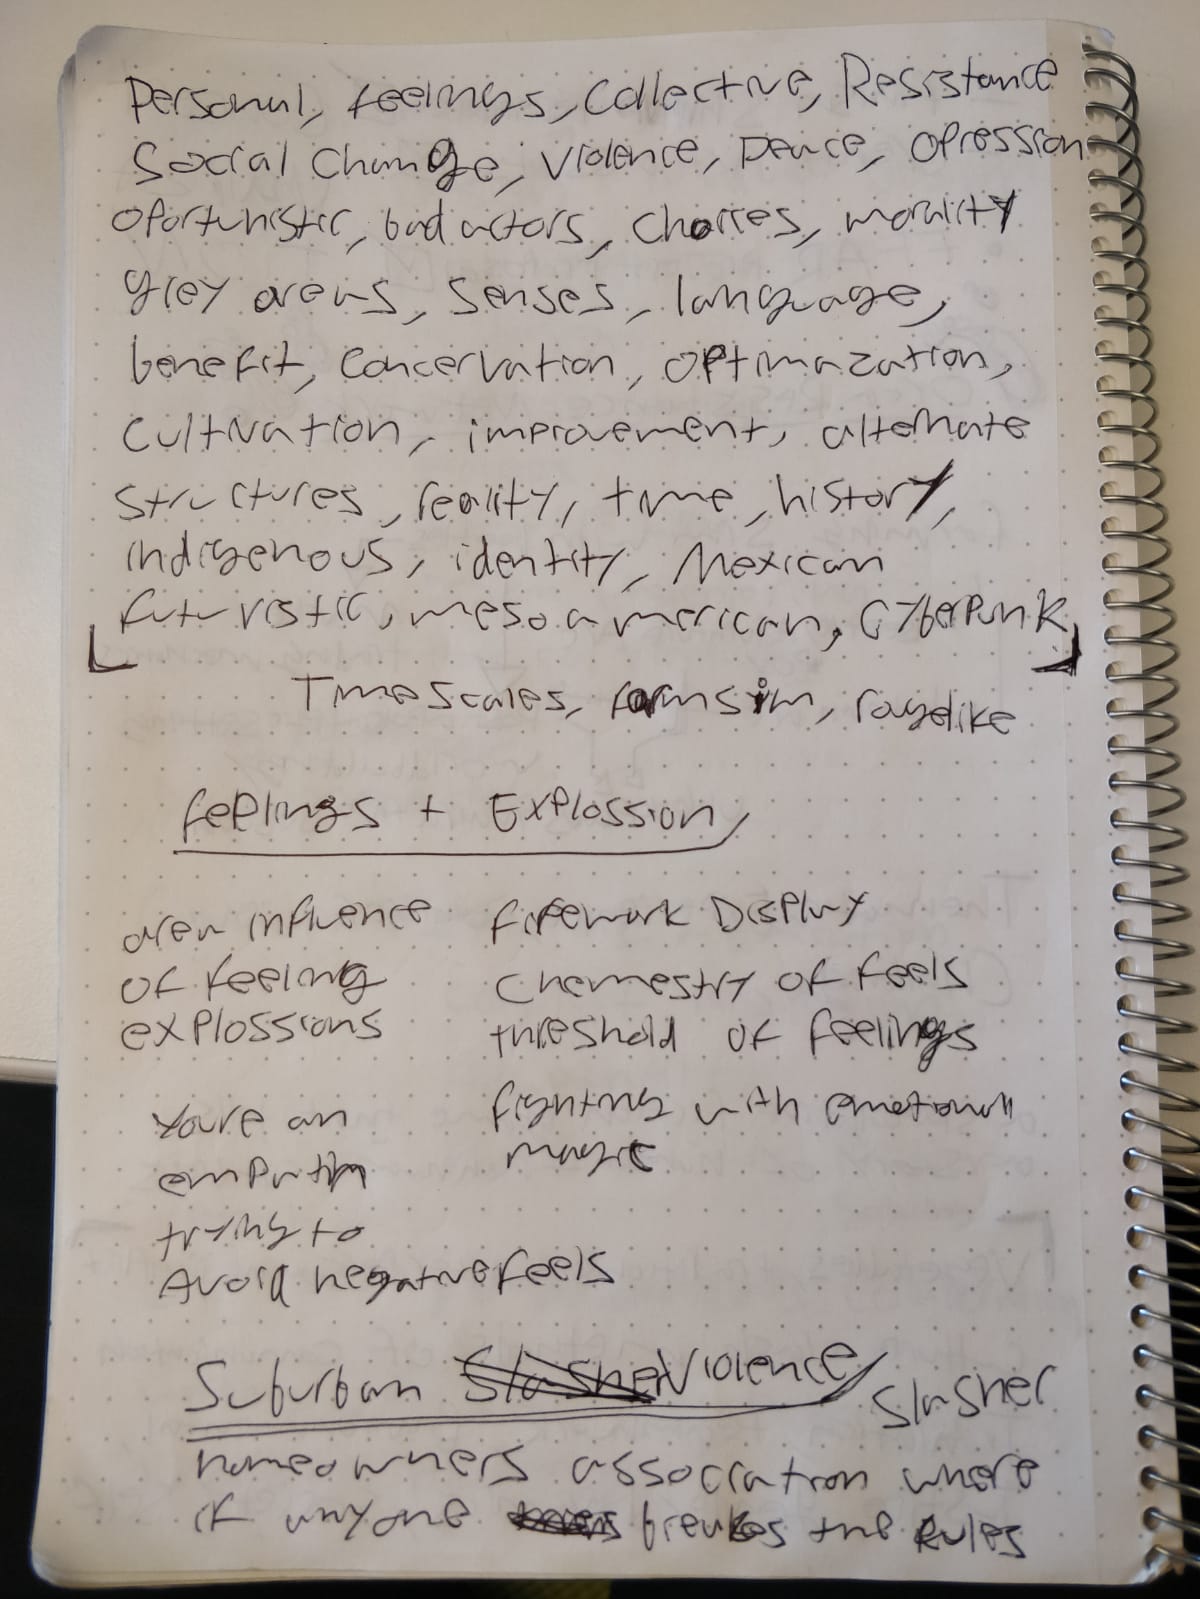 Personal, feelings, Collective, Resistance
Social Change, Violence, peace, Opression
Oportunistic, bad actors, Choices, morality
grey areas, senses, language,
benefit, Concervation, optimazation,
Cultivation, improvement, alternate
structures, reality, time, history,
indigenous, identity, Mexican
futuristic, mesoamerican, CyberPunk
Time Scales, farmsim, rougelike
feelings + Explossion
area influence
of feeling
explossions
Youre an
empath
trying to
Avoid negative feels
firework Display
Chemestry of feels
threshold of feelings
fighting with emotional
magic
Suburban Slasher Violence Slasher
homeowners association where
if anyone breakes the Rules